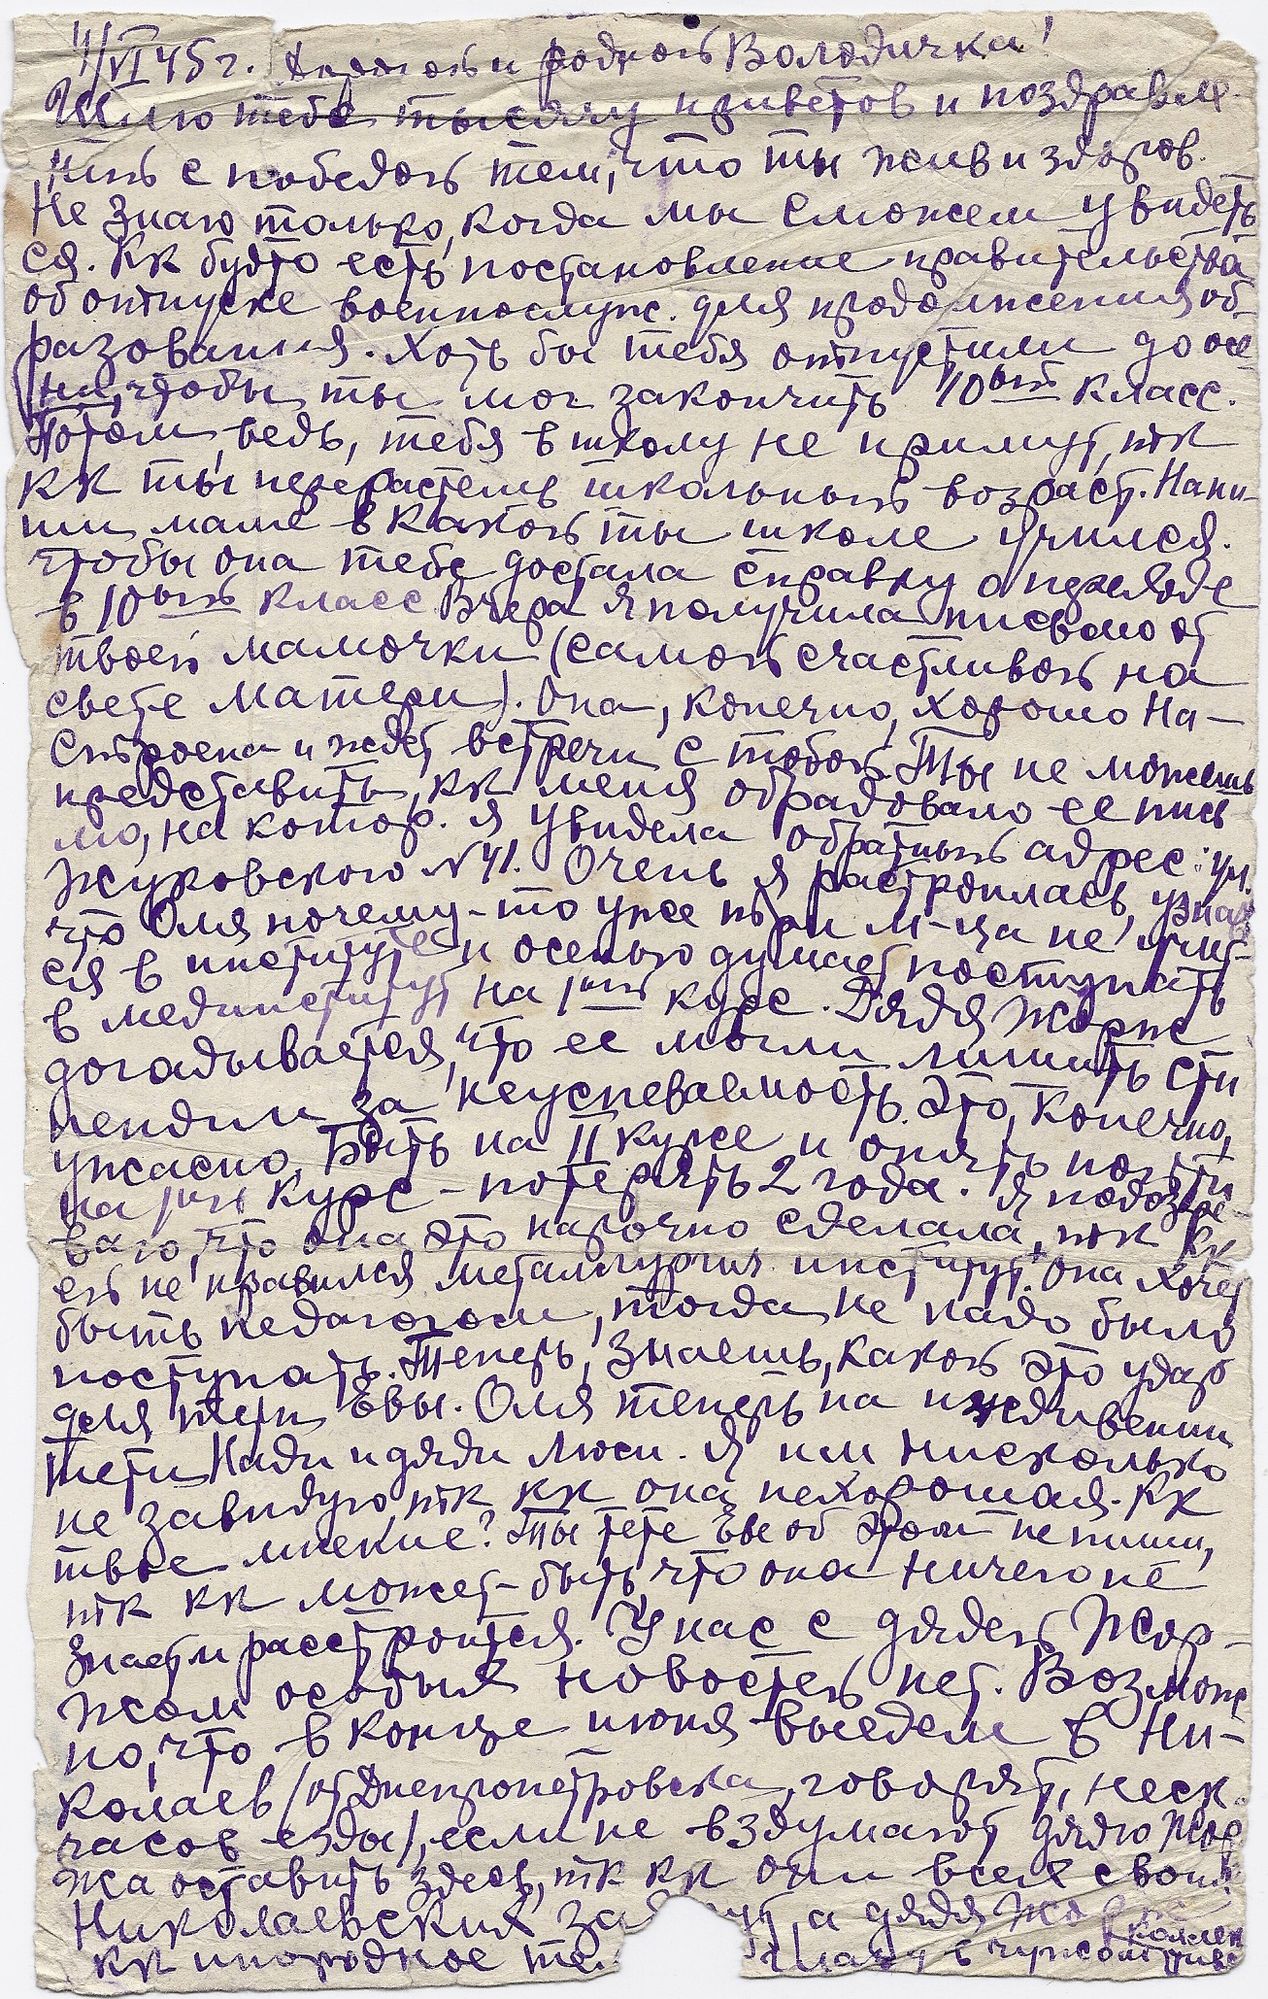 4/VI 45 г. Дорогой и родной Володичка!
Шлю тебе тысячу приветов и поздравле-
ний с победой тем, что ты жив и здоров.
Не знаю только, когда мы сможем увидеть
ся. Кк будто есть постановление правительства
об отпуске военнослуж. для продолжения об-
разования. Хоть бы тебя отпустили до осе
ни, чтобы ты мог закончить 10ый класс.
Потом, ведь, тебя в школу не примут, тк
кк ты перерастешь школьный возраст. Напи-
ши маме в какой ты школе учился.
чтобы она тебе достала справку о переходе
в 10ый класс. Вчера я получила письмо от
твоей мамочки (самой счастливой на
свете матери). Она, конечно, хорошо на-
строена и ждет встречи с тобой. Ты не можешь
представить, кк меня обрадовало ее пись-
мо, на котор. я увидела обратный адрес: ул.
Жуковского №41. Очень я расстроилась, узнав
что Оля почему-то уже три м-ца не учит-
ся в институте и осенью думает поступать
в мединститут на 1ый курс. Дядя Жорж
догадывается, что ее могли лишить сти
пендии за неуспеваемость. Это, конечно,
ужасно. Быть на II курсе и опять пойти
на 1ый курс – потерять 2 года. Я подозре-
ваю, что она это нарочно сделала, тк кк
ей не нравился металлургич. институт. Она хочет
быть педагогом, тогда не надо было
поступать. Теперь, знаешь, какой это удар
для тети Евы. Оля теперь на иждивении
тети Нади и дяди Люси. Я им нисколько
не завидую тк кк она нехорошая. Кк
твое мнение? Ты тете Еве об этом не пиши,
тк кк может-быть что она ничего не
знает и расстроится. У нас с дядей Жор-
жем особых новостей нет. Возмож
но, что в конце июня выедем в Ни-
колаев (от Днепропетровска, говорят, неск.
часов езды), если не вздумают дядю Жор
жа оставить здесь, тк кк они всех своих
Николаевских, а дядя Жорж
кк инородное в чужом
коллек